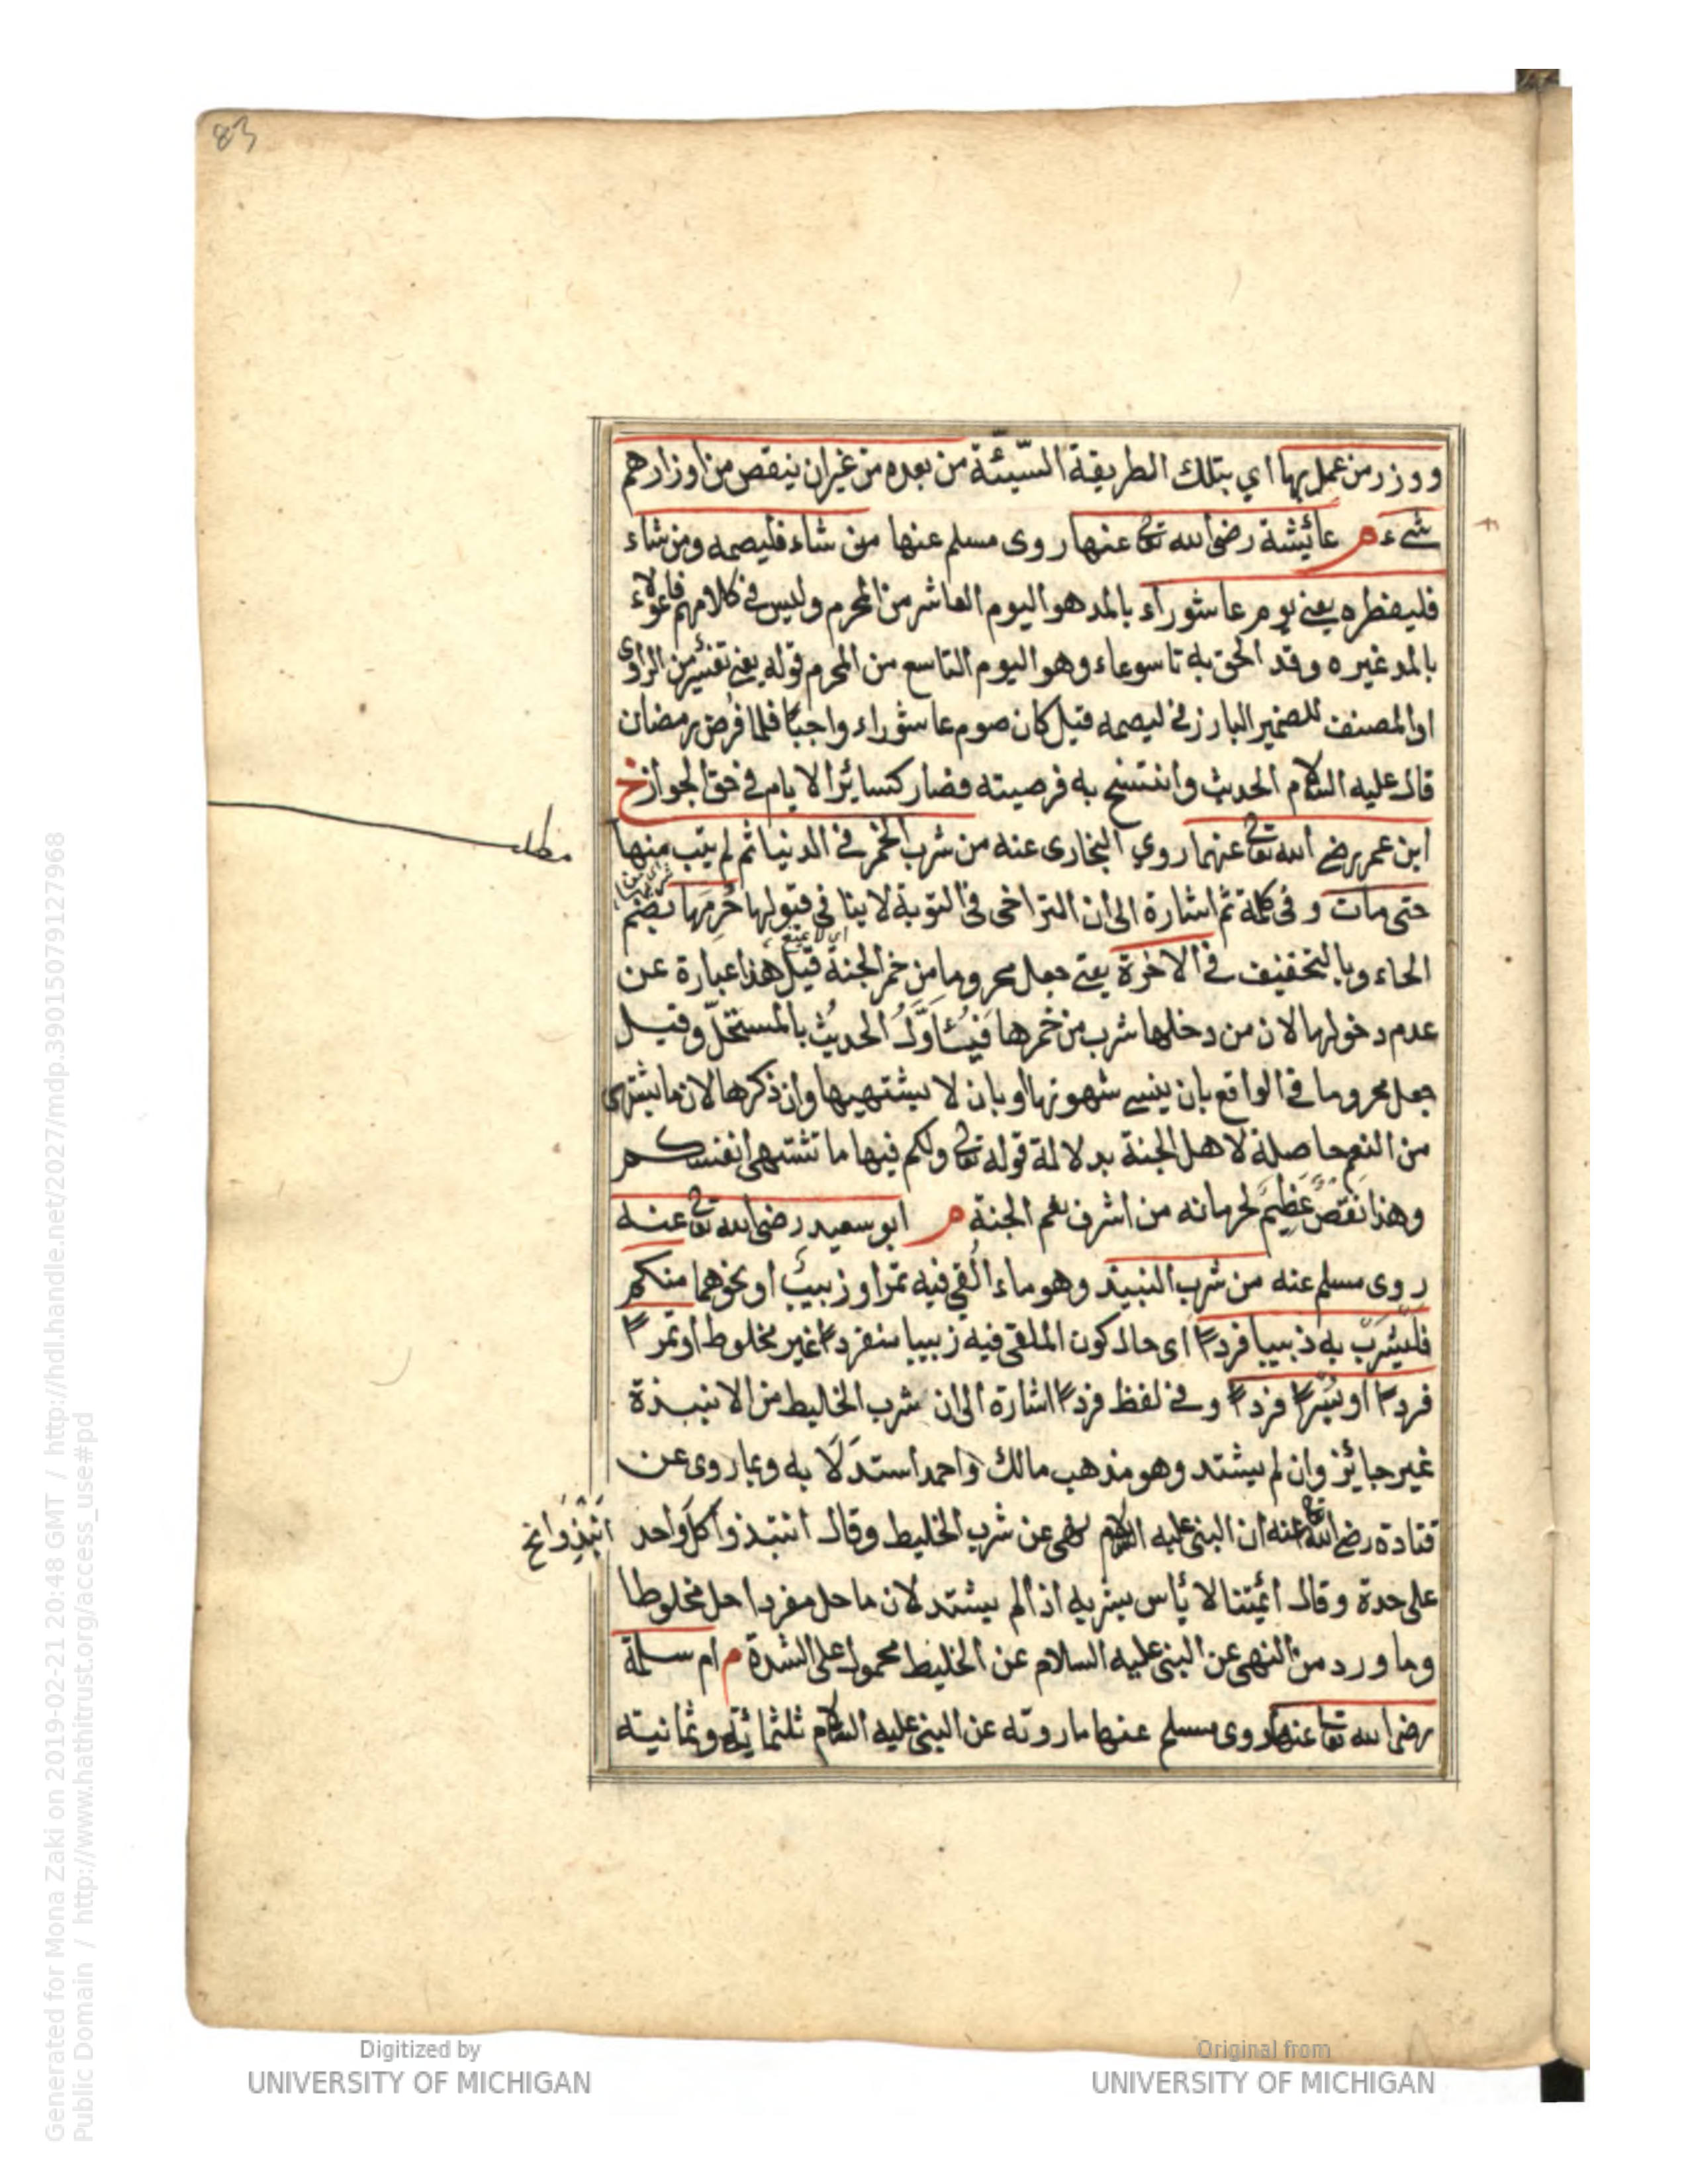 83
ووزر من عمل بها اي بتلك الطريقة السّيئة من بعده من غير ان ينقص من اوزارهم
شيء م عائيشة رضى الله تعا عنها روى مسلم عنها من شاء فليصمه ومن شاء
فليفطره يعنى يوم عاشوراء بالمد هو اليوم العاشر من المحرم وليس فى كلامهم فاعولاء
بالمد غيره وقد الحق به تاسوعاء وهو اليوم التاسع من المحرم قوله يعنى تفسير من الراوى
او المصنف للضمير البارز فى ليصمه قيل كان صوم عاشوراء واجبا فلما فرض رمضان
قال عليه السلام الحديث وانتسخ به فرضيته فصار كسائر الايام فى حق الجواز خ
ابن عمر رضى الله تعا عنهما روي البخارى عنه من شرب الخمر فى الدنيا ثم لم يتب منها
مطلب
حتى مات وفى كلمة ثم اشارة الى ان التراخى فى التوبة لا ينافى قبولها حُرِمَها بضم
الحاء وبالتخفيف فى الاخرة يعنى جعل محروما من خمر الجنة قيل هذا عبارة عن
عدم دخولها لان من دخلها شرب من خمرها فَيُتَأَوَّلُ الحديثُ بالمستحلّ وقيل
جعل محروما فى الواقع بان ينسى شهوتها او بان لا يشتهيها وان ذكرها لان ما يشتهى
من النعم حاصلة لاهل الجنة بدلالة قوله تعا ولكم فيها ما تشتهى انفسكم
وهذا نَقصٌ عَظِيمٌ لحرمانه من اشرف نعم الجنة م ابو سعيد رضى الله تعا عنه
روى مسلم عنه من شرب النبيذ وهو ماء اُلقي فيه تمر او زبيب او نحوهما منكم
فليشربْ به ذبيبا فردا اى حال كون الملقى فيه زبيبا منفردا غير مخلوط او تمرا
فردا او بُسْرا فردا وفى لفظ فردا اشارة الى ان شرب الخليط من الانبذة
غير جايئز وان لم يشتد وهو مذهب مالك واحمد استدلّا به وبما روى عن
قتادة رضى الله تعا عنه ان النبى عليه السلام نهى عن شرب الخليط وقال انتبذوا كل واحد
انبذوا نخ
على حدة وقال ائمتنا لا يأس بشربه اذا لم يشتد لان ما حل مفردا حل مخلوطا
وما ورد من النهى عن النبى عليه السلام عن الخليط محمول على الشدة م ام سلمة
رضى الله تعا عنها روى مسلم عنها ما روته عن النبى عليه السلام ثلثمائة وثمانية
Digitized by
UNIVERSITY OF MICHIGAN
Original from
UNIVERSITY OF MICHIGAN
Generated for Mona Zaki on 2019-02-21 20:48 GMT / http://hdl.handle.net/2027/mdp.39015079127968
Public Domain / http://www.hathitrust.org/access_use#pd